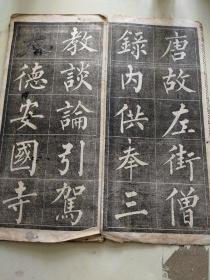 唐故左街僧
錄內供奉三
教談論引駕
德安國寺